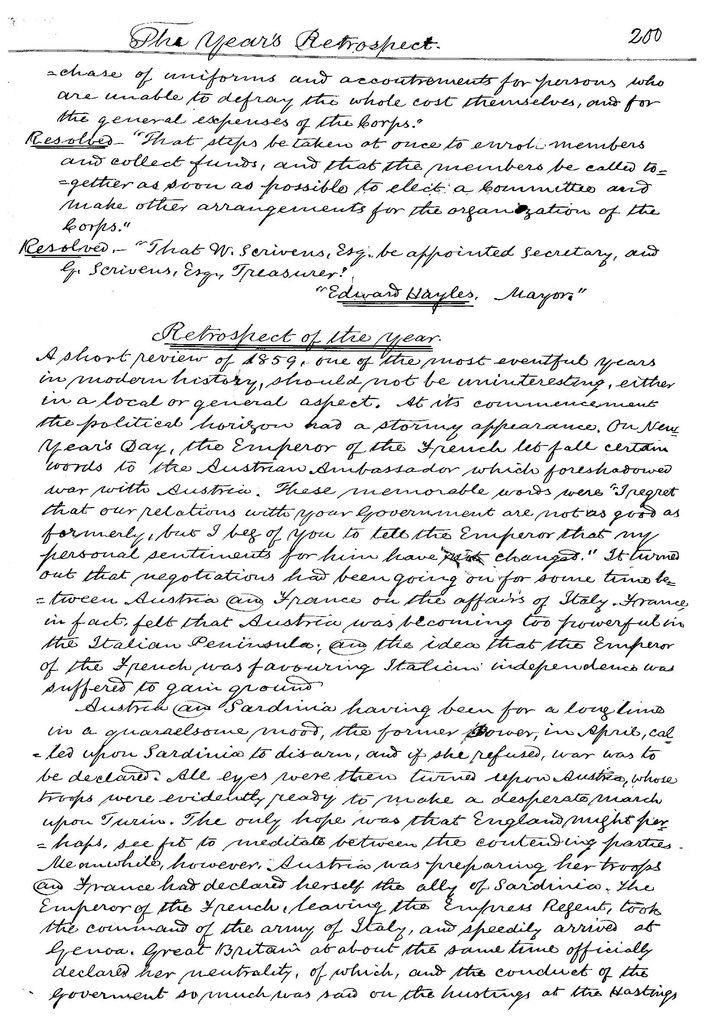 The Year's Retrospect. 200
=chase of uniforms and accoutrements for persons who
are unable to defray the whole cost themselves, and for
the general expenses of the Corps."
Resolved - "That steps be taken at once to enrol members
and collect funds, and that the members be called to=
=gether as soon as possible to elect a Committee and
make other arrangements for the organization of the
Corps."
Resolved. - "That W. Scrivens, Esq. be appointed Secretary, and
G. Scrivens, Esq., Treasurer."
"Edward Hayles, Mayor."
Retrospect of the Year.
A short review of 1859, one of the most eventful years
in modern history, should not be uninteresting, either
in a local or general aspect. At its commencement
the political horizon had a stormy appearance. On New
Year's Day, the Emperor of the French let fall certain
words to the Austrian Ambassador which foreshadowed
war with Austria. These memorable words were "I regret
that our relations with your Government are not as good as
formerly, but I beg of you to tell the Emperor that my
personal sentiments for him have not changed." It turned
out that negotiations had been going on for some time be=
=tween Austria an France on the affairs of Italy. France
in fact, felt that Austria was becoming too powerful in
the Italian Peninsula; an the idea that the Emperor
of the French was favouring Italian independence was
suffered to gain ground
Austria an Sardinia having been for a long time
in a quarrelsome mood, the former Power, in April, cal=
=led upon Sardinia to disarm, and if she refused, war was to
be declared. All eyes were then turned upon Austria, whose
troops were evidently ready to make a desperate march
upon Turin. The only hope was that England might per=
=haps, see fit to meditate between the contending parties.
Meanwhile, however, Austria was preparing her troops
an France had declared herself the ally of Sardinia. The
Emperor of the French, leaving the Empress Regent, took
the command of the army of Italy, and speedily arrived at
Genoa. Great Britain at about the same time officially
declared her neutrality, of which, and the conduct of the
Goverment so much was said on the hustings at the Hastings